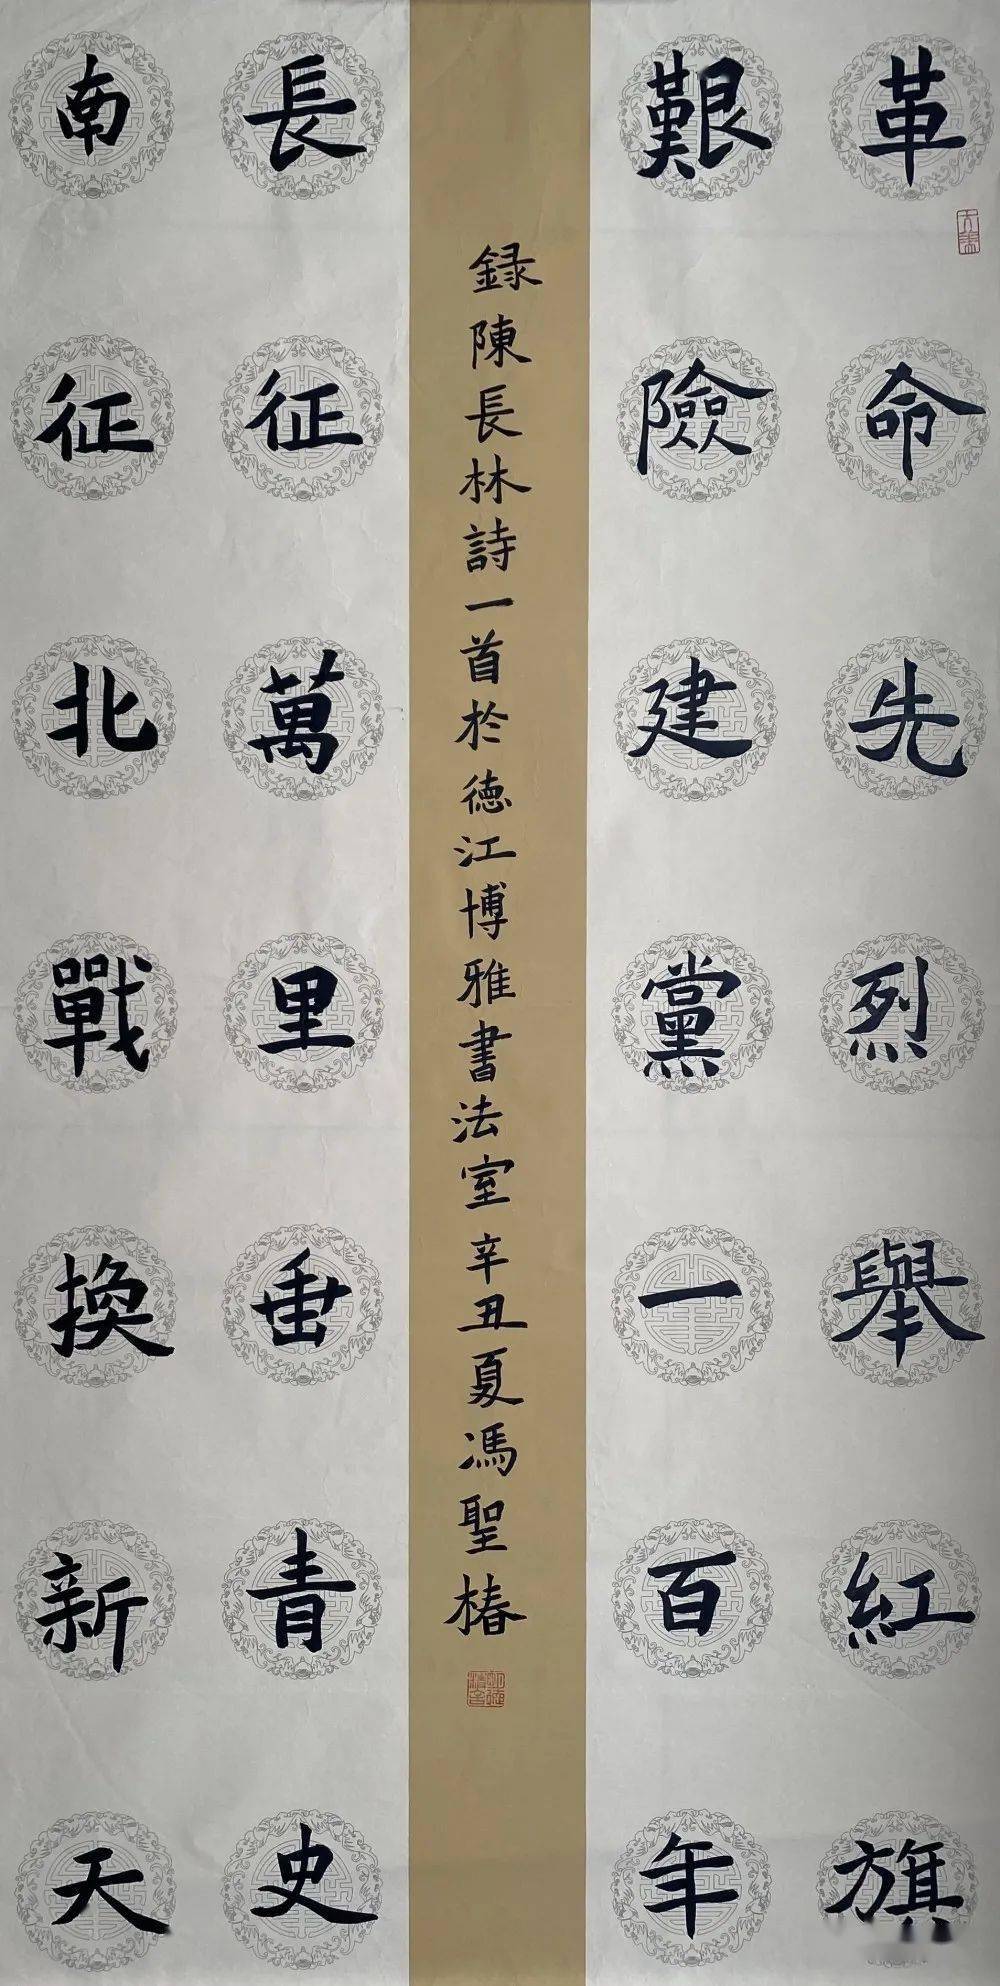 革命先烈舉紅旗
艱險建黨一百年
録陳長林詩一首於德江博雅書法室辛丑夏馮聖椿
長征萬里垂青史
南征北戰換新天